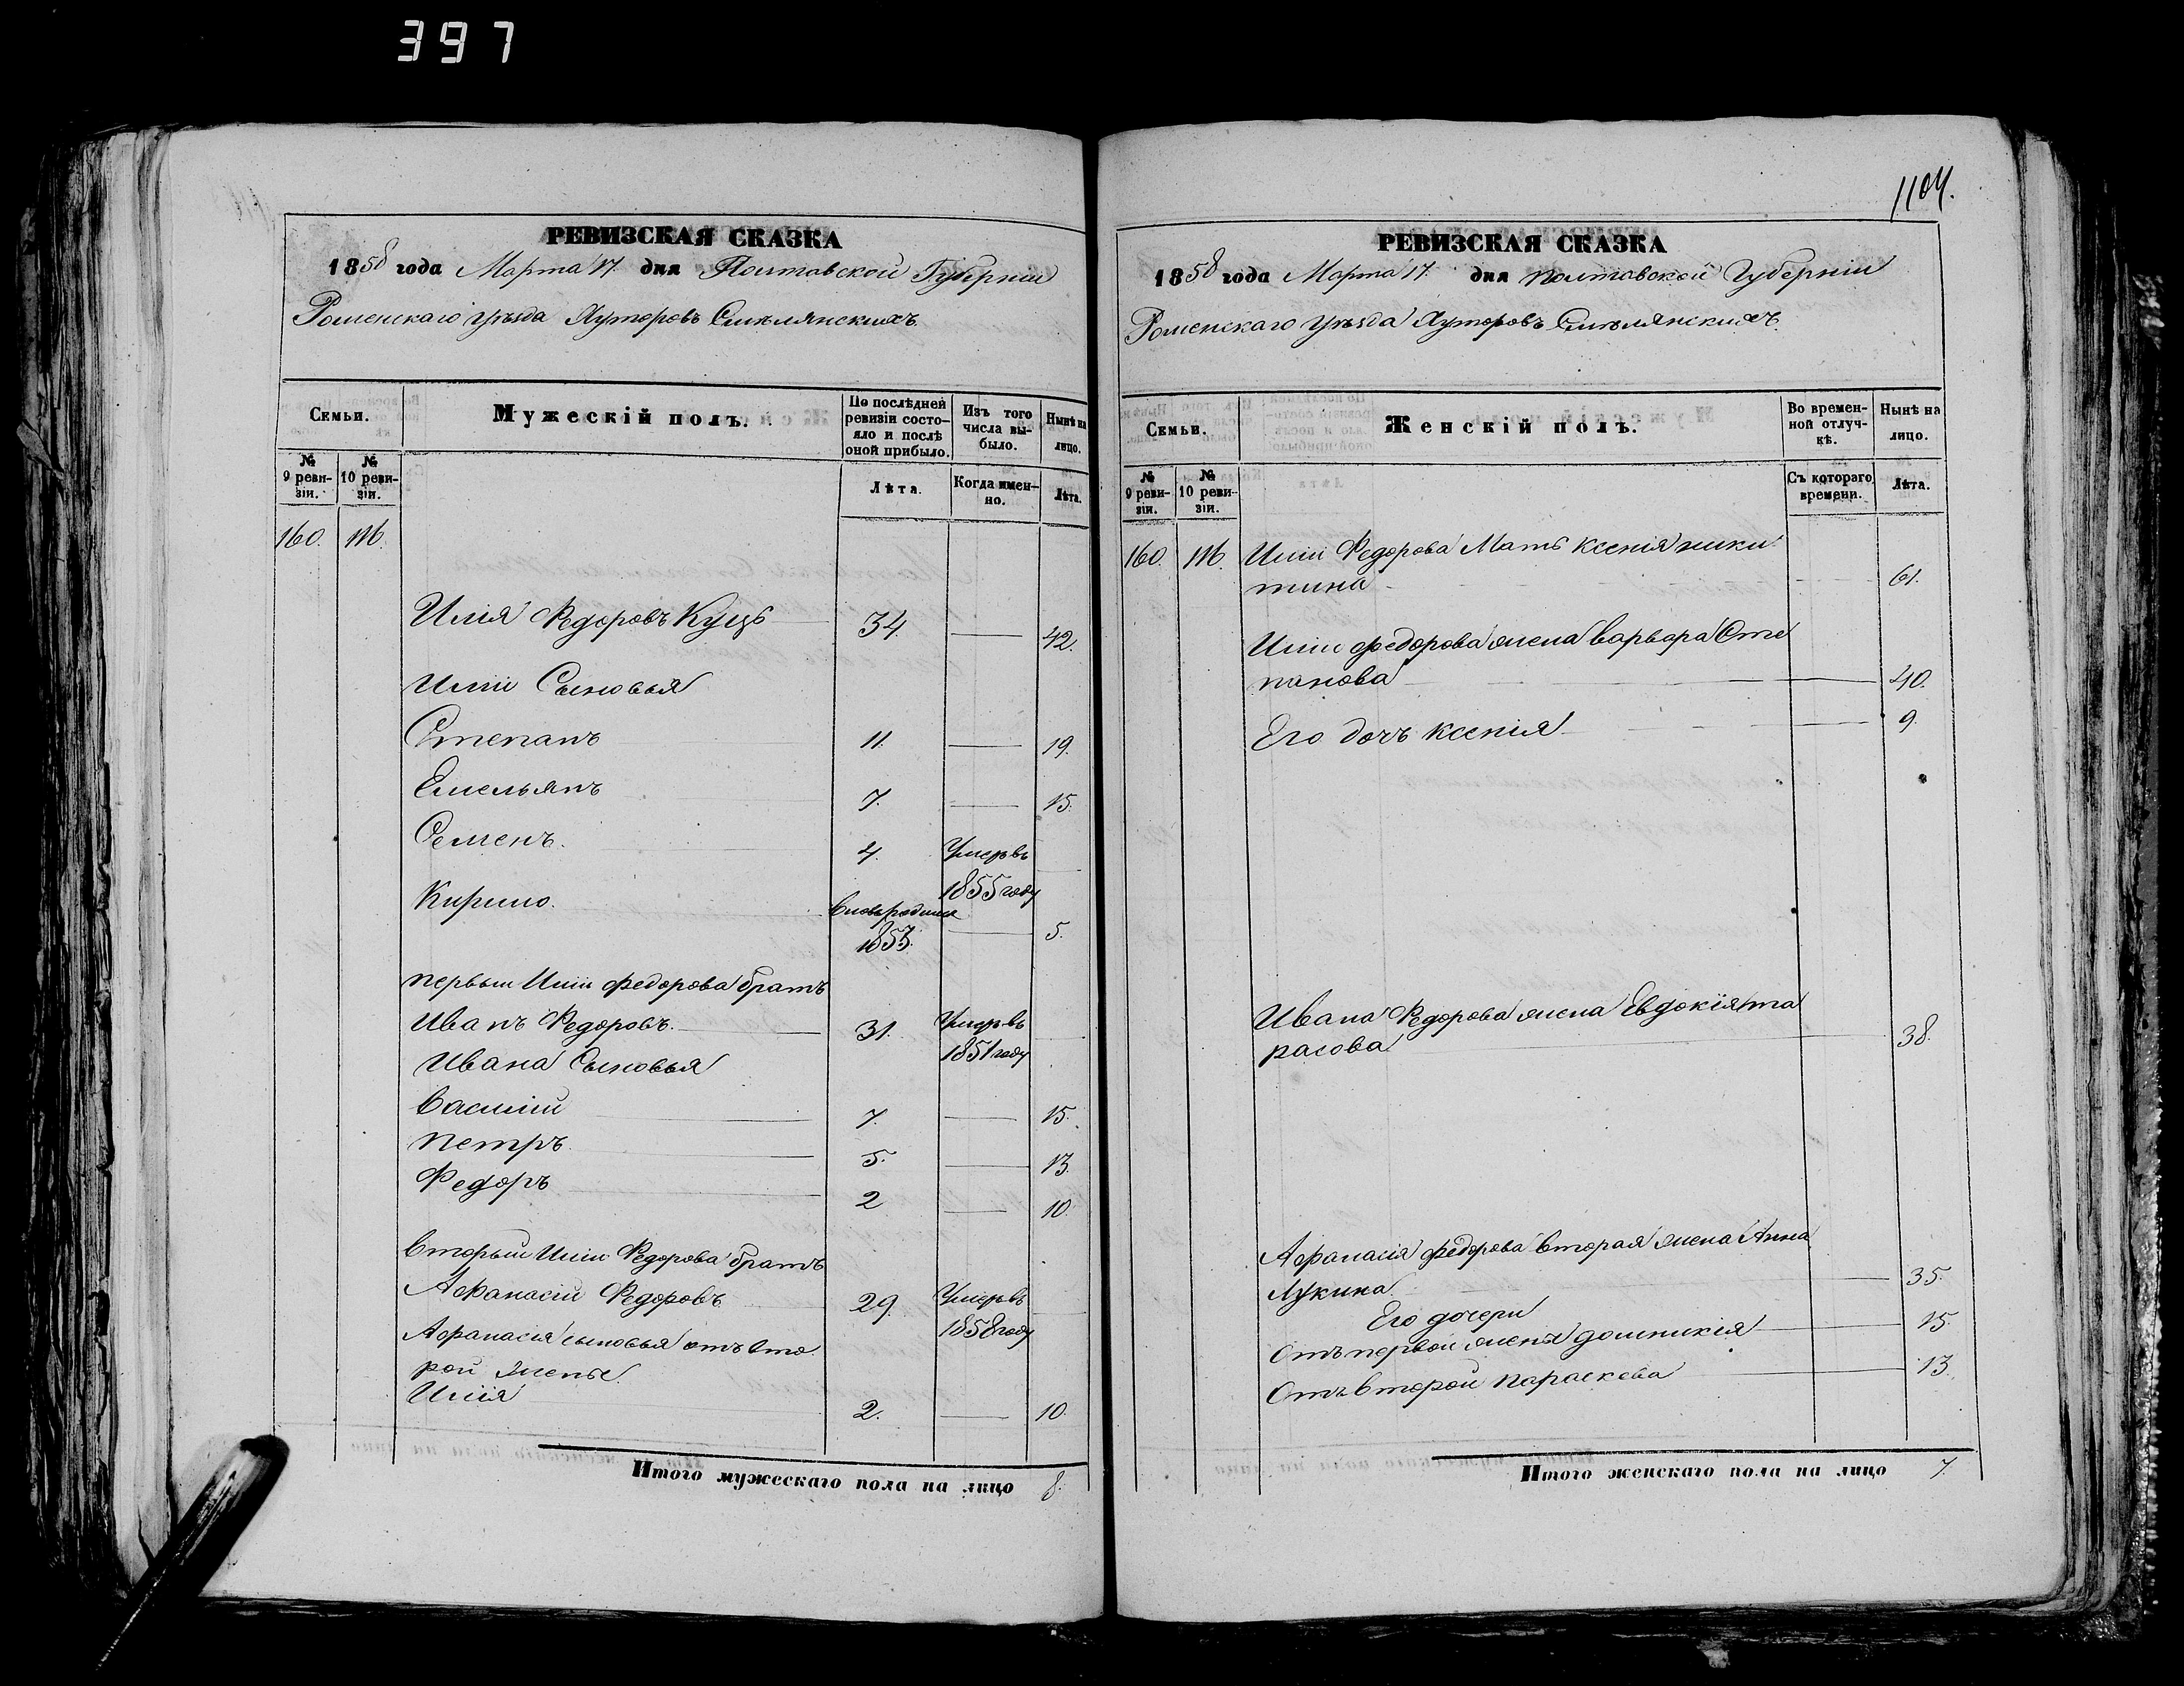 397
РЕВИЗСКАЯ СКАЗКА
1858 года Марта 17. дня Полтавской Губерніи
Роменскаго уѣзда Хуторовъ Смѣлянскихъ.
Семьи.
Мужескій полъ.
По послѣдней ревизіи состояло и послѣ оной прибыло.
Изъ того числа выбыло.
Нынѣ на лицо.
№ 9 ревизіи.
№ 10 ревизіи.
Лѣта.
Когда именно.
Лѣта.
160.
Илія Федоровъ Куць 34. 42.
Иліи Сыновья
Степанъ 11. 19.
Емельянъ 7. 15.
Семенъ. 4. Умеръ въ
1855 году
Кирило. вновь родился
1853. 5.
первый Иліи федорова братъ
Иванъ Федоровъ. 31. Умеръ въ
1851 году
Ивана Сыновья
Василій 7. 15.
Петръ 5. 13.
Федоръ 2 10.
вторый Иліи Федорова братъ
Афанасій Федоровъ 29. Умеръ въ
1858 году
Афанасія сыновья отъ вто
рой жены.
Илія 2. 10.
Итого мужескаго пола на лицо 8.
1104.
РЕВИЗСКАЯ СКАЗКА
1858 года Марта 17. дня Полтавской Губерніи
Роменскаго уѣзда Хуторовъ Смѣлянскихъ.
Семьи.
Женскій полъ.
Во временной отлучкѣ.
Нынѣ на лицо.
№ 9 ревизіи.
№ 10 ревизіи.
Съ котораго времени.
Лѣта.
160. Иліи Федорова Мать Ксенія Ники
тина 61.
Иліи федорова жена варвара Сте
панова 40.
Его дочь Ксенія 9.
Ивана Федорова жена Евдокія та
расова 38.
Афанасія федорова вторая жена Анна
Лукина. 35.
Его дочери
Отъ первой жены домникія 15.
Отъ второй параскева 13.
Итого женскаго пола на лицо 7.